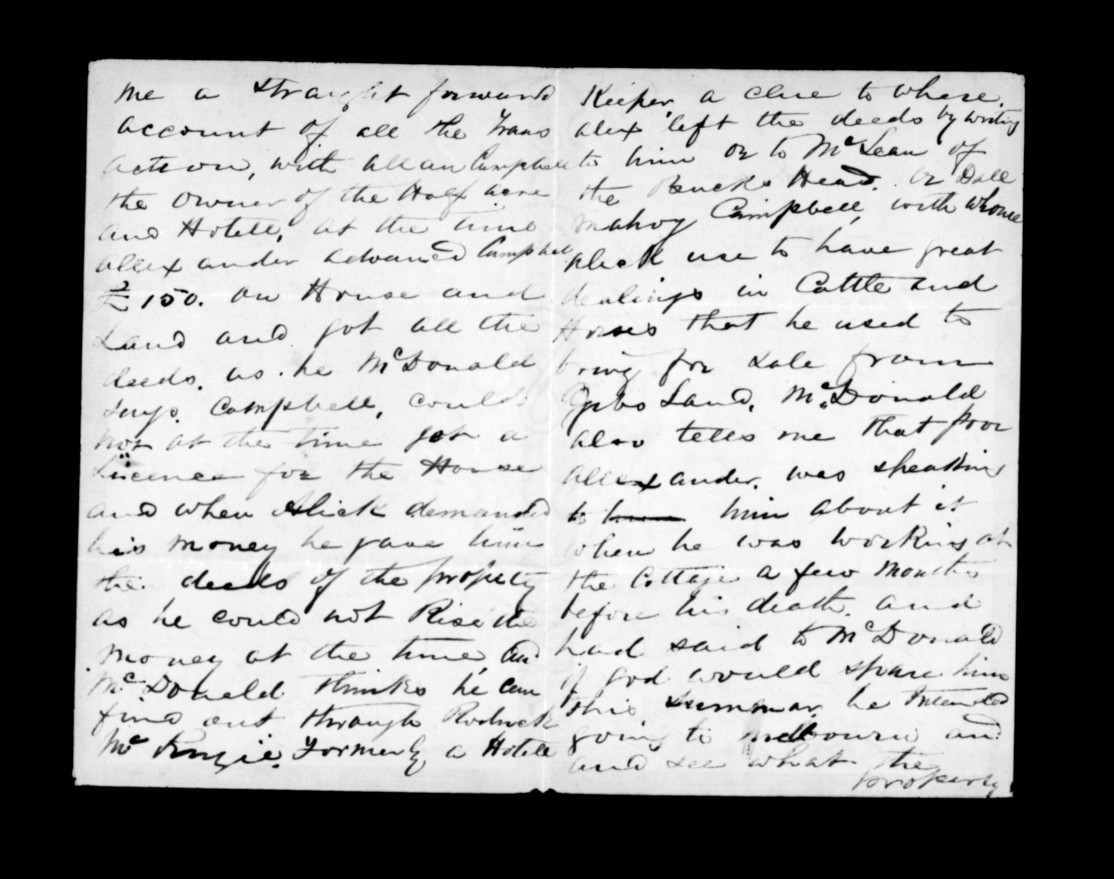 me a straight forward
account of all the Trans
action, with allan Campbell
the owner of the Half acre
and Hotell, at the time
allexander advanced Campbell
£150. on House and
Land and got all the
deeds. as he McDonald
says. Campbell, could
not at the time get a
Licence for the House
and when Alick demanded
his money he gave him
the deeds of the property
as he could not Rise the
money at the time, and
McDonald thinks he can
find out through Rodrick
Mc Kinzie. Formerly a Hotell
Keeper, a clue to where.
alex left the deeds by writing
to him or to McLean of
the Bucks Head. or Dall
mahoy Campbell, with whome
aleck use to have great
dealings in Cattle and
Horses that he used to
bring for sale from
Gibs Land. McDonald
also tells me that poor
allexander, was speaking
to him about it
when he was working at
the Cottage a few months
before his death. and
had said to McDonald
if god would spare him
this summar he Intended
going to melbourn and
and see what the
property